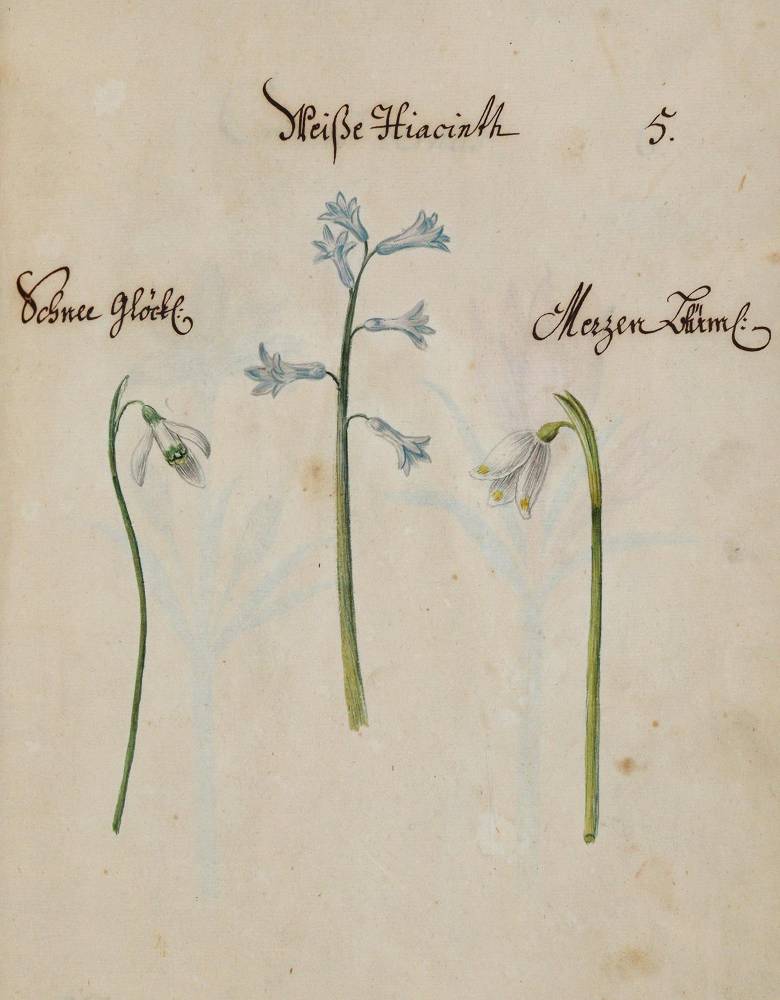 Weiße Hiacinth 5.
Schnee Glöckl:
Merzen Blüml: